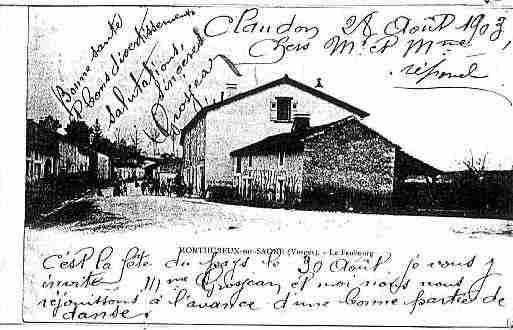 Claudon 28 Août 1903
Chers Mr et Mme,
répond
Bonne santé
& bons divertissements
salutations,
sincères
Grosjean
MONTHUREUX-sur-SAONE (Vosges). - Le Faubourg
C'est la fête du pays le 30 Août je vous y
invite Mme Grosjean et moi nous nous
réjouissons à l'avance d'une bonne partie de
danse.